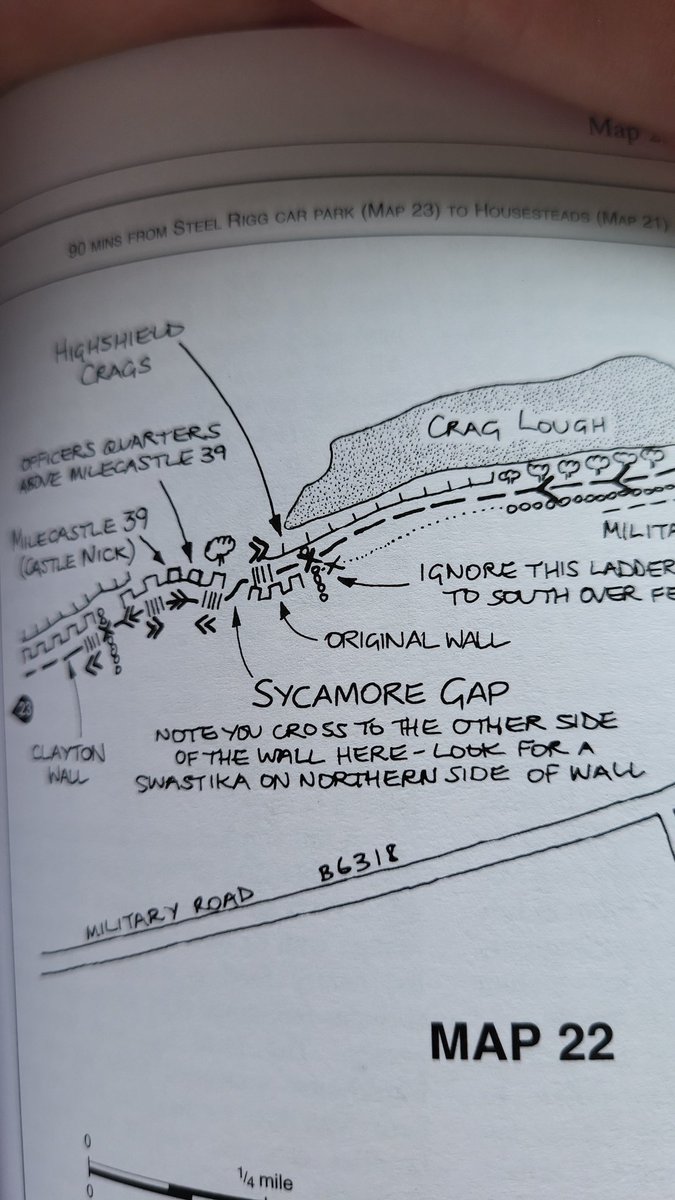 Map 2
90 MINS FROM STEEL RIGG CAR PARK (MAP 23) TO HOUSESTEADS (MAP 21)
HIGHSHIELD
CRAGS
CRAG LOUGH
OFFICER'S QUARTERS
ABOVE MILECASTLE 39
MILECASTLE 39
(CASTLE NICK)
MILITA
IGNORE THIS LADDER
TO SOUTH OVER FE
ORIGINAL WALL
SYCAMORE GAP
NOTE YOU CROSS TO THE OTHER SIDE
OF THE WALL HERE - LOOK FOR A
SWASTIKA ON NORTHERN SIDE OF WALL
23
CLAYTON
WALL
MILITARY ROAD B6318
MAP 22
0 1/4 mile
0